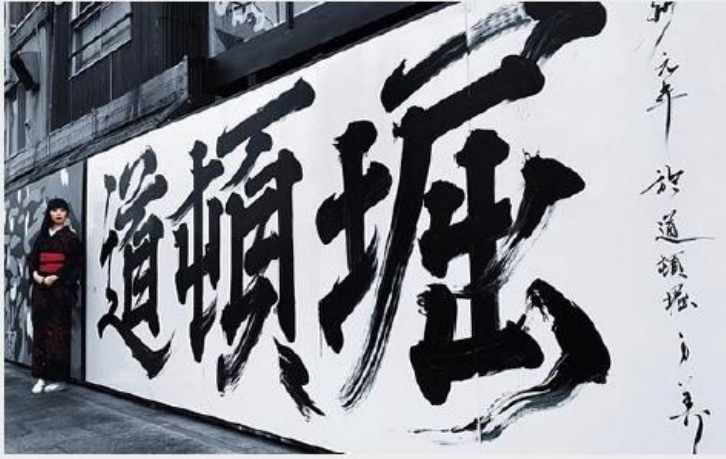 道頓堀
元年 於 道頓堀